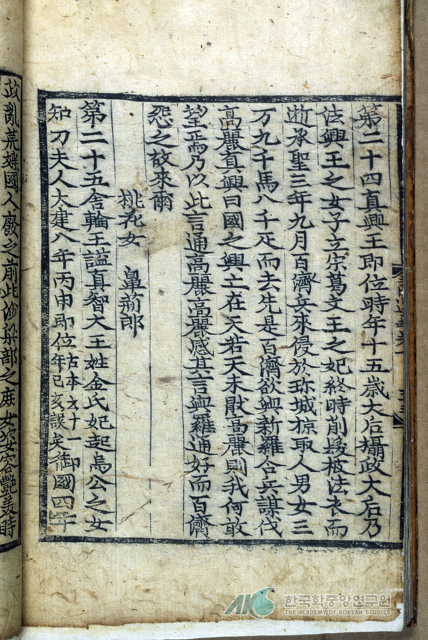 第二十四真興王即位時年十五歲大后攝政大后乃
法興王之女子立宗葛文王之妃終時削髮被法衣而
逝承聖三年九月百濟兵來侵於珎城掠取人男女三
万九千馬八千疋而去先是百濟欲與新羅合兵謀伐
高麗真興曰國之興亡在天若天未猒高麗則我何敢
望焉乃以此言通高麗高麗感其言與羅通好而百濟
怨之故來爾
桃花女 鼻荊郎
第二十五舍輪王謚真智大王姓金氏妃起烏公之女
知刀夫人大建八年丙申即位古本云十一年己亥誤矣御國四年
政亂荒婬國人廢之前此沙梁部之庶女姿容艶美時
AKS 한국학중앙연구원
THE ACADEMY OF KOREAN STUDIES